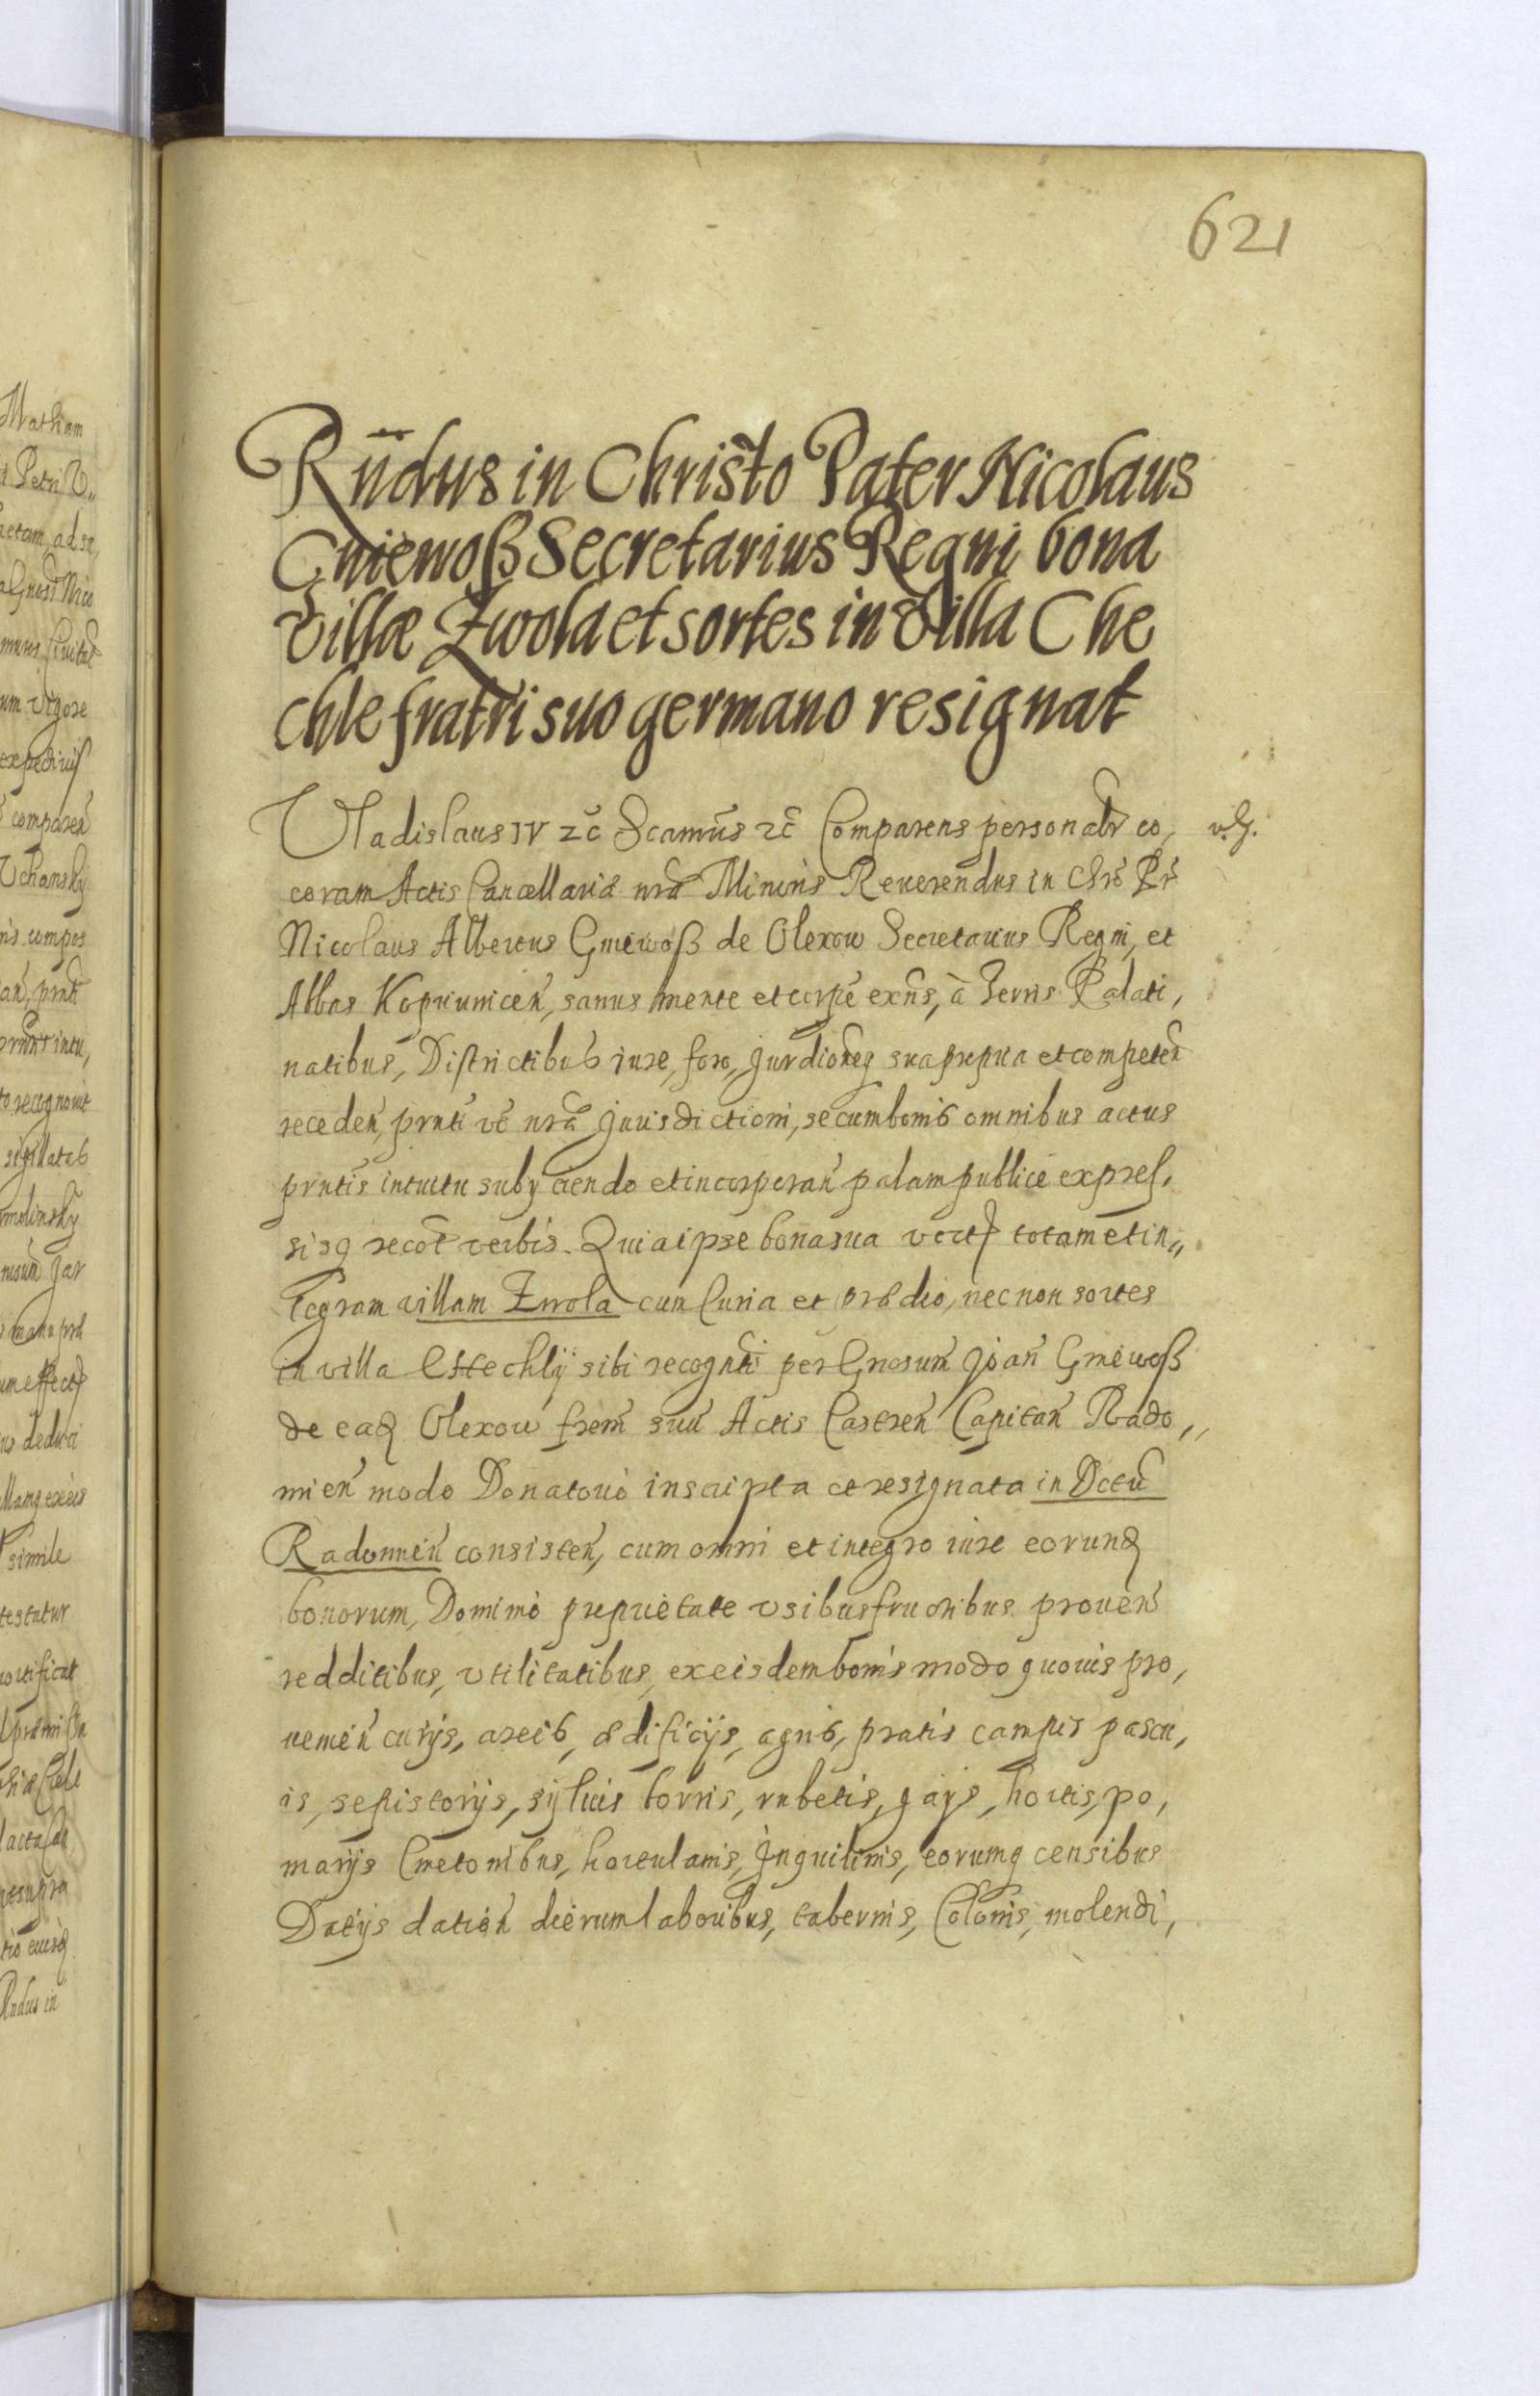 621
Rn̄dus in Christo Pater Nicolaus
Gniewoß Secretarius Regni bona
Villæ Zwola et sortes in Villa Che
chle fratri suo germano resignat
Vladislaus IV zc̄ Scamūs zc̄ Comparens personalr̄ co,
coram Actis Cancellariæ nrā Minoris Reuerendus in Chrō Pr̄
Nicolaus Albertus Gniewoß de Olexow Secretarius Regni, et
Abbas Kopriunicen̄, sanus mente et corpē exn̄s, à Terris Palati,
natibus, Districtibus iure, foro, Jurdioneq sua propria et competen̄
receden̄, prn̄ti vē nrā Jurisdictioni, se cum bonis omnibus actus
prn̄tis intuitu subijciendo et incorporan̄ palam publice expres,
sisq recōt verbis. Quia ipse bona sua vert totam et in,,
tegram villam Zwola cum Curia et prædio, nec non sortes
in villa Chechly sibi recogn̄ti per Gnosum Joan̄ Gniewoß
de eadq Olexow frēm suū Actis Castren̄ Capitan̄ Rado,,
mien̄ modo Donatorio inscripta et resignata in Dctū
Radomien̄ consisten̄, cum omni et integro iure eorundq
bonorum, Dominio proprietate vsibusfructibus prouen̄
redditibus, vtilitatibus, ex eisdem bonis modo quouis pro,
uenien̄ curijs, areis, ædificijs, agris, pratis campis pascu,
is, sepistorijs, syluis borris, rubetis, gajs, hortis, po,
marijs Cmetonibus, hortulanis, Inquilinis, eorumq censibus
Datijs dation̄ dierum laboribus, tabernis, Colonis, molendi,